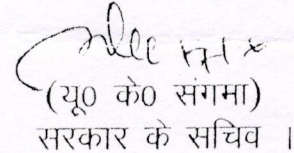 (यू0 के0 संगमा)
सरकार के सचिव ।